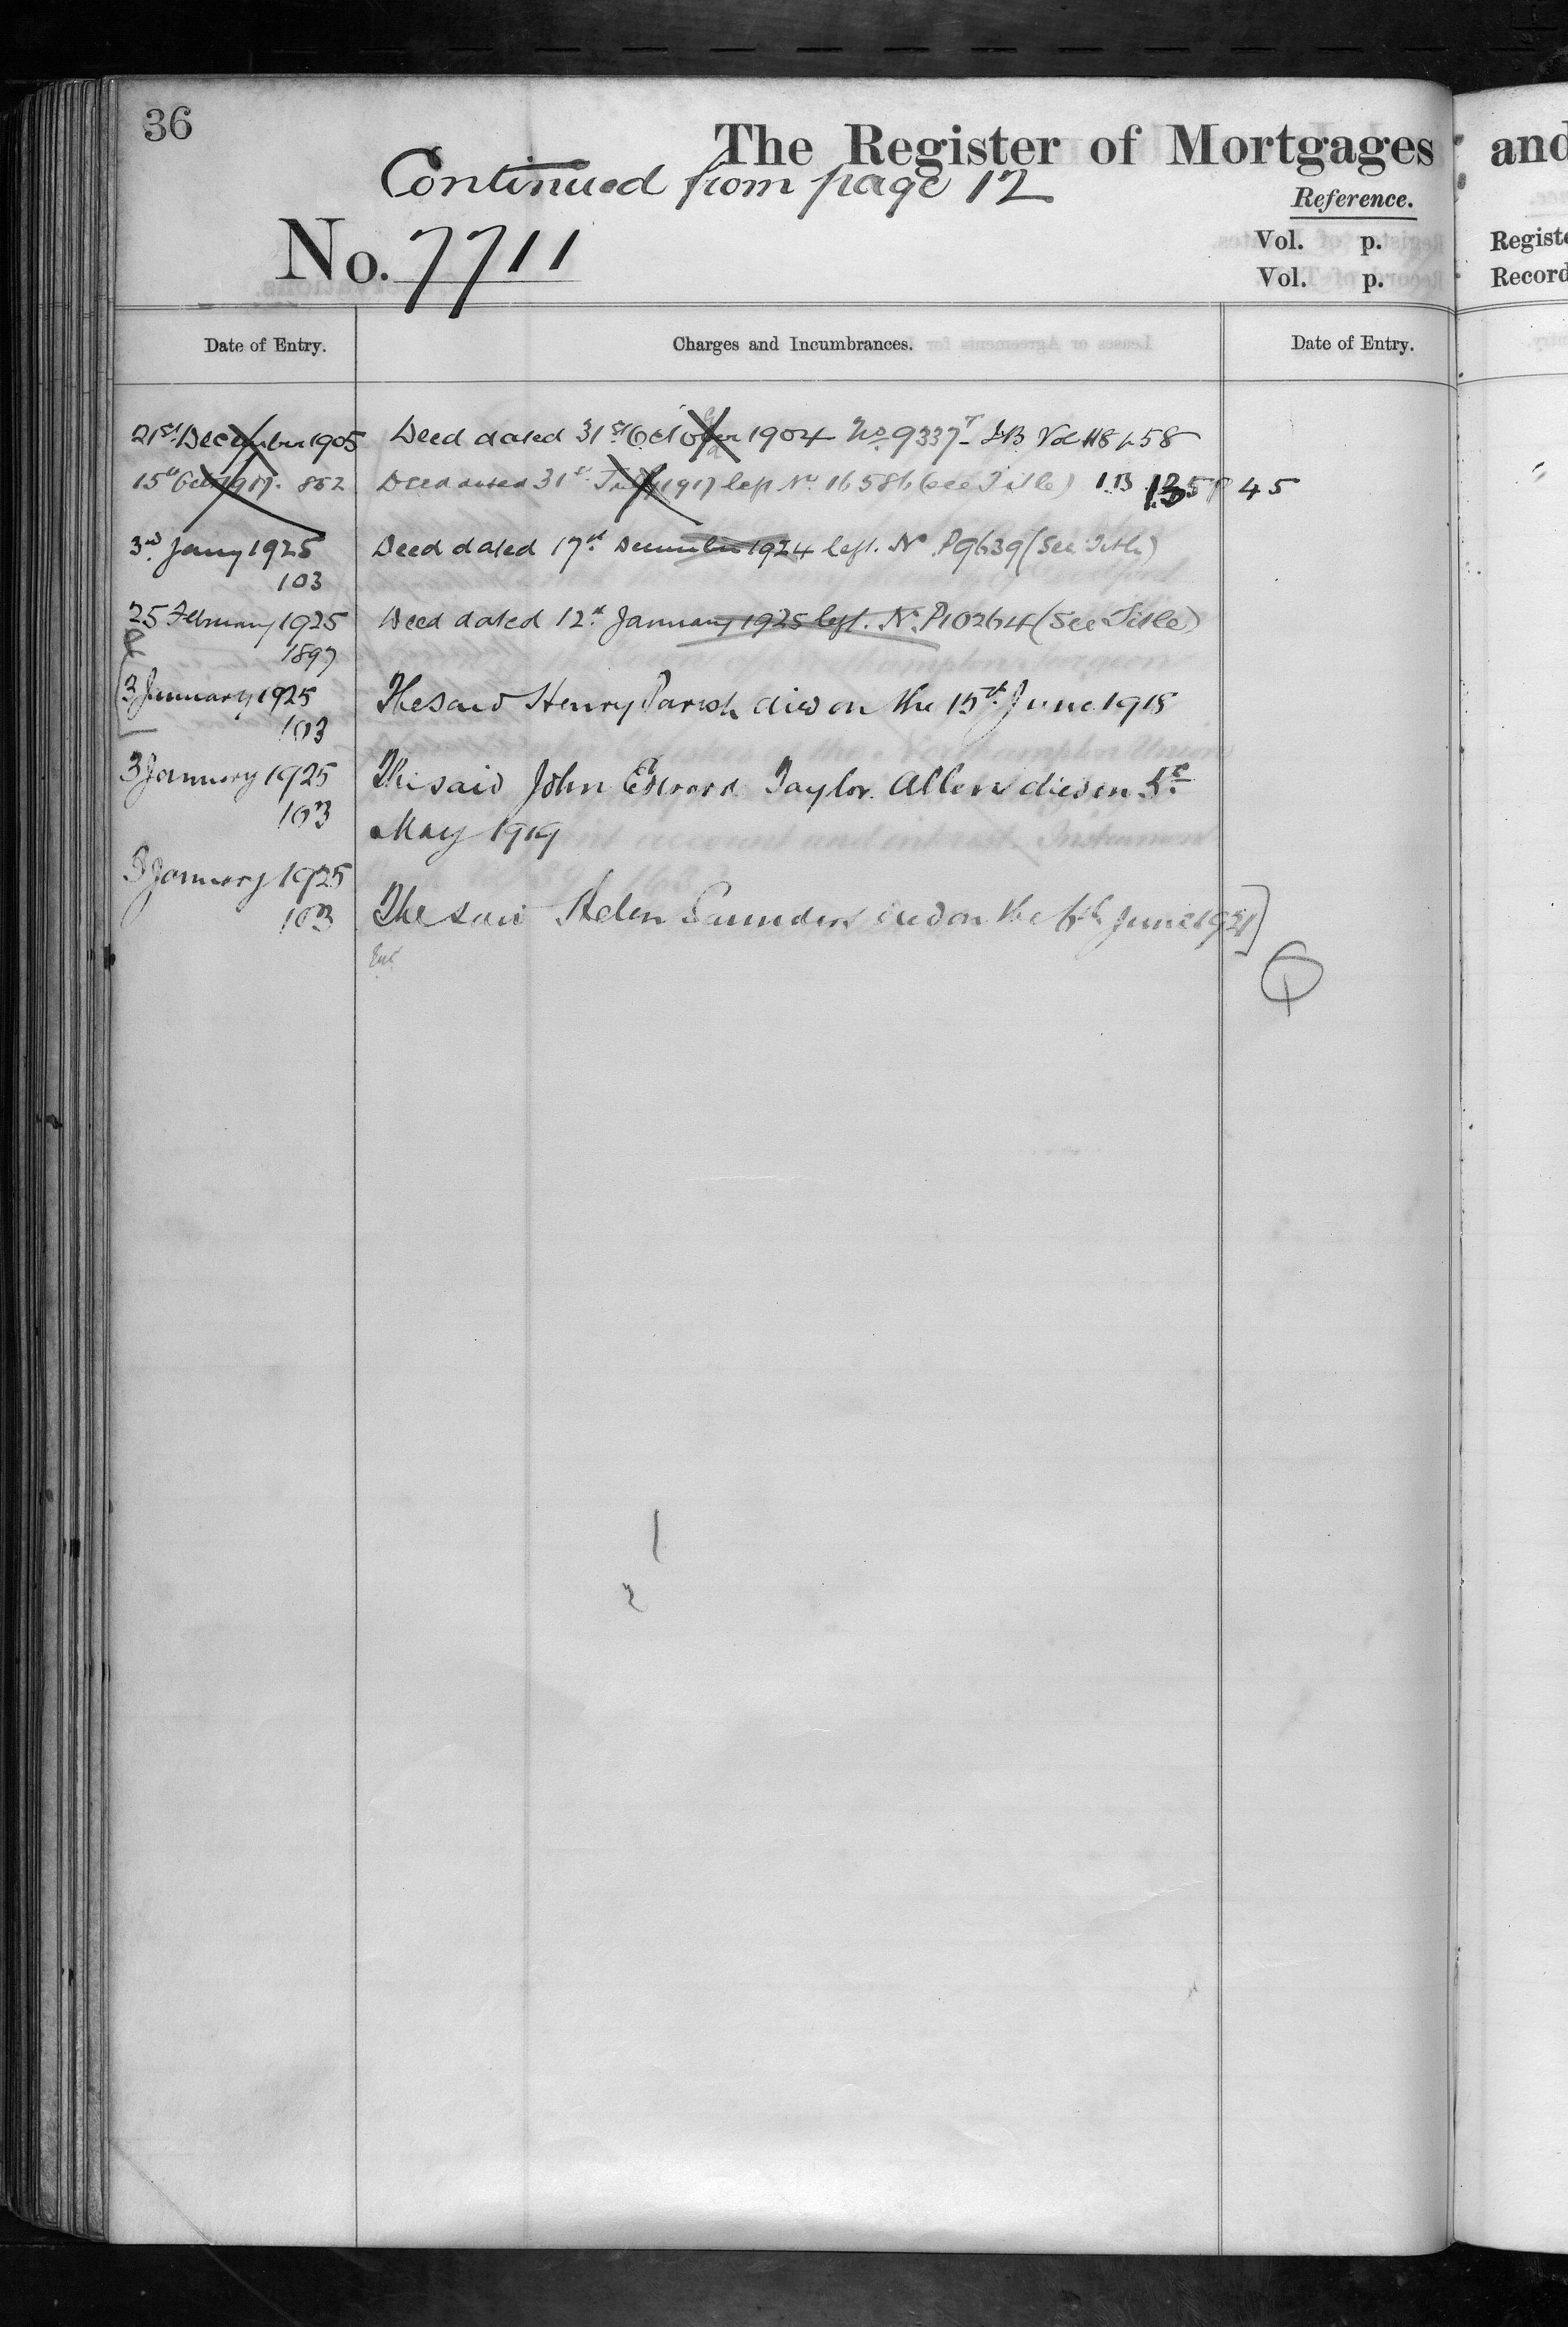 36
The Register of Mortgages
and
Continued from page 12
Reference.
No. 7711
Vol. p.
Vol. p.
Registe
Record
Date of Entry.
Charges and Incumbrances.
Date of Entry.
21st December 1905 Deed dated 31st October 1904 No 9337T IB Vol 118 p 58
15th Oct 1917. 852 Deed dated 31st July 1917 left No 16586 (see Title) IB 135 P 45
3rd Jany 1925 Deed dated 17th December 1924 left. No P9639 (See Title)
103
25 February 1925 Deed dated 12th January 1925 left. No. P10264 (See Title)
1897
3 January 1925 The said Henry Parish died on the 15th June 1918
103
3 January 1925 The said John Edward Taylor Allen died on
103
May 1919
3 January 1925
103 The said Helen Saunders died on the June 1921
Ent